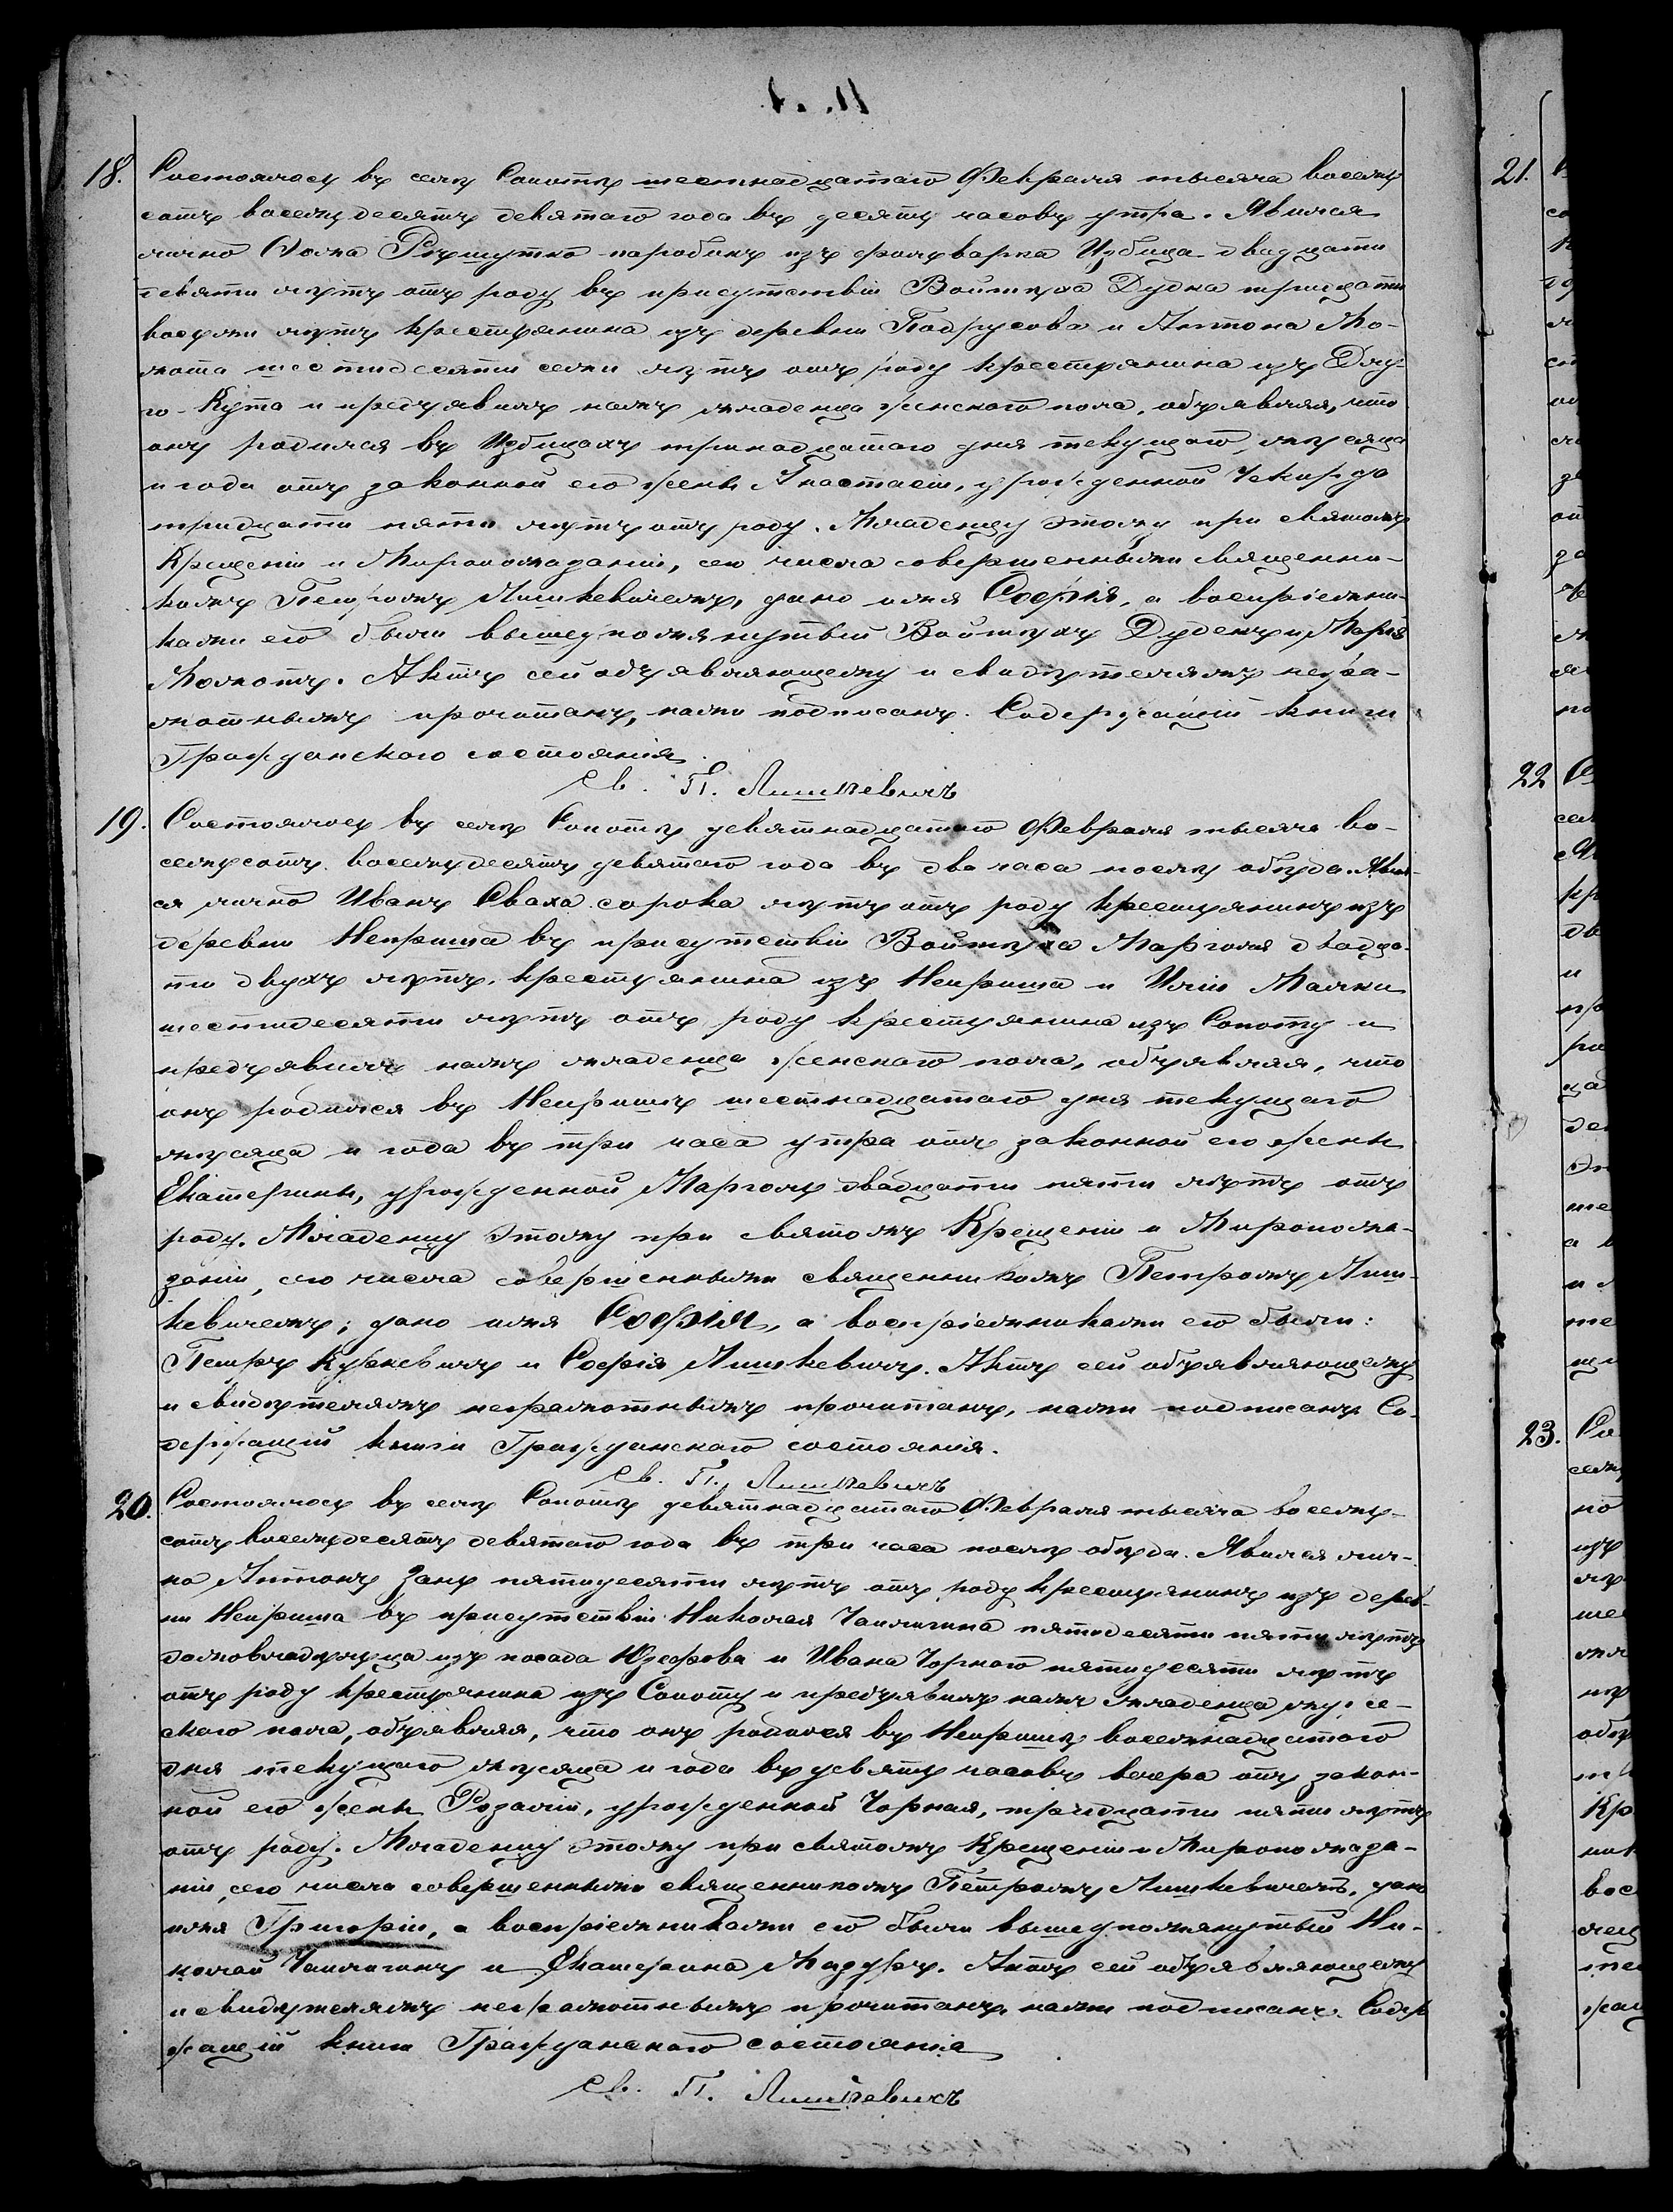 18. Состоялось въ селѣ Сопотѣ шестнадцатаго Февраля тысяча восемь
сотъ восемьдесятъ девятаго года въ десять часовъ утра. Явился
лично Ѳома Рѣшутко паробокъ изъ фольварка Избица двадцати
девяти лѣтъ отъ роду въ присутствіи Войтѣха Дудка тридцати
восьми лѣтъ крестьянина изъ деревни Подрусова и Антона Мо-
мота шестидесяти семи лѣтъ отъ роду крестьянина изъ Длу-
го-Кута и предъявилъ намъ младенца женскаго пола, объявляя, что
онъ родился въ Избицахъ тринадцатаго дня текущаго мѣсяца
и года отъ законной его жены Анастасіи, урожденной Чекирда
тридцати пяти лѣтъ отъ роду. Младенцу этому при Святомъ
Крещеніи и Мѵропомазаніи, сего числа совершенными священни-
комъ Петромъ Лишкевичемъ, дано имя Софія, а воспріемни-
ками его были вышеупомянутый Войтѣхъ Дудекъ и Марія
Момотъ. Актъ сей объявляющему и свидѣтелямъ негра-
мотнымъ прочитанъ, нами подписанъ. Содержащій книги
Гражданскаго состоянія
Св. П. Лишкевичъ
19. Состоялось въ селѣ Сопотѣ девятнадцатаго Февраля тысяча во-
семьсотъ восемьдесятъ девятаго года въ два часа послѣ обѣда. Явил-
ся лично Иванъ Сваха сорока лѣтъ отъ роду крестьянинъ изъ
деревни Неприша въ присутствіи Войтѣха Марголя двадца-
ти двухъ лѣтъ, крестьянина изъ Неприша и Иліи Малки
шестидесяти лѣтъ отъ роду крестьянина изъ Сопоту и
предъявилъ намъ младенца женскаго пола, объявляя, что
онъ родился въ Непришѣ шестнадцатаго дня текущаго
мѣсяца и года въ три часа утра отъ законной его жены
Екатерины, урожденной Марголь двадцати пяти лѣтъ отъ
роду. Младенцу этому при Святомъ Крещеніи и Мѵропома-
заніи, сего числа совершенными священникомъ Петромъ Лиш-
кевичемъ, дано имя Софія, а воспріемниками его были:
Петръ Куркевичъ и Софія Лишкевичъ. Актъ сей объявляющему
и свидѣтелямъ неграмотнымъ прочитанъ, нами подписанъ. Со-
держащій книги Гражданскаго состоянія.
Св. П. Лишкевичъ
20. Состоялось въ селѣ Сопотѣ девятнадцатаго Февраля тысяча восемь-
сотъ восемьдесятъ девятаго года въ три часа послѣ обѣда. Явился лич-
но Антонъ Занъ пятидесяти лѣтъ отъ роду крестьянинъ изъ дерев-
ни Неприша въ присутствіи Николая Чаплигина пятидесяти пяти лѣтъ
домовладѣльца изъ посада Юзефова и Ивана Чорного пятидесяти лѣтъ
отъ роду крестьянина изъ Сопоту и предъявилъ намъ младенца муже-
скаго пола, объявляя, что онъ родился въ Непришѣ восемнадцатаго
дня текущаго мѣсяца и года въ девять часовъ вечера отъ закон-
ной его жены Розаліи, урожденной Чорная, тридцати пяти лѣтъ
отъ роду. Младенцу этому при Святомъ Крещеніи и Мѵропомаза-
ніи, сего числа совершенными священникомъ Петромъ Лишкевичемъ, дано
имя Григорій, а воспріемниками его были вышеупомянутый Ни-
колай Чаплигинъ и Екатерина Мазуръ. Актъ сей объявляющему
и свидѣтелямъ неграмотнымъ прочитанъ, нами подписанъ. Содер
жащій книги Гражданскаго состоянія
Св. П. Лишкевичъ
21.
22
23.